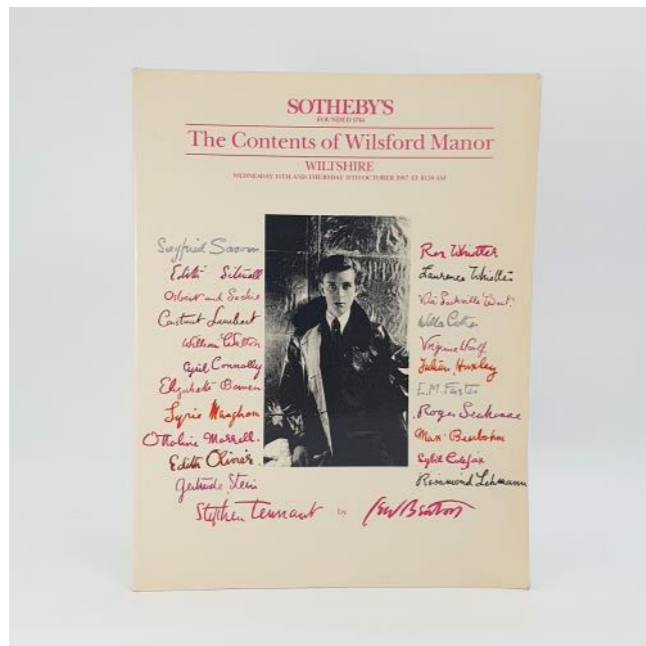 SOTHEBY'S
FOUNDED 1744
The Contents of Wilsford Manor
WILTSHIRE
WEDNESDAY 14TH AND THURSDAY 15TH OCTOBER 1987 AT 10.30 AM
Siegfried Sassoon
Edith Sitwell
Osbert and Sachie
Constant Lambert
William Walton
Cyril Connolly
Elizabeth Bowen
Syrie Maugham
Ottoline Morrell.
Edith Olivier.
Gertrude Stein
Rex Whistler
Laurence Whistler
Vita Sackville West.
Willa Cather
Virginia Woolf
Julian Huxley
E.M. Forster
Roger Senhouse
Max Beerbohm
Sybil Colefax
Rosamond Lehmann
Stephen Tennant by Cecil Beaton